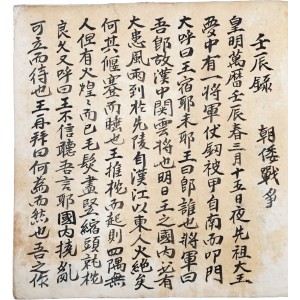 壬辰錄 朝倭戰爭
皇明萬曆壬辰春三月十五日夜先祖大王
夢中有一將軍仗釰被甲自南而叩門
大呼曰王宿耶未耶王曰郎誰也將軍曰
吾郎故漢中關雲將也明日王之國內必有
大患風雨到於先陵自漢江以東人火絶矣
何其偃蹇而睡也王推枕而起則四隅無
人但有火煌〻而已毛髮盡竪縮頭就枕
良久又呼曰王不信聽吾言耶國內擾亂
可立而待也王再拜曰何為而然也吾之作